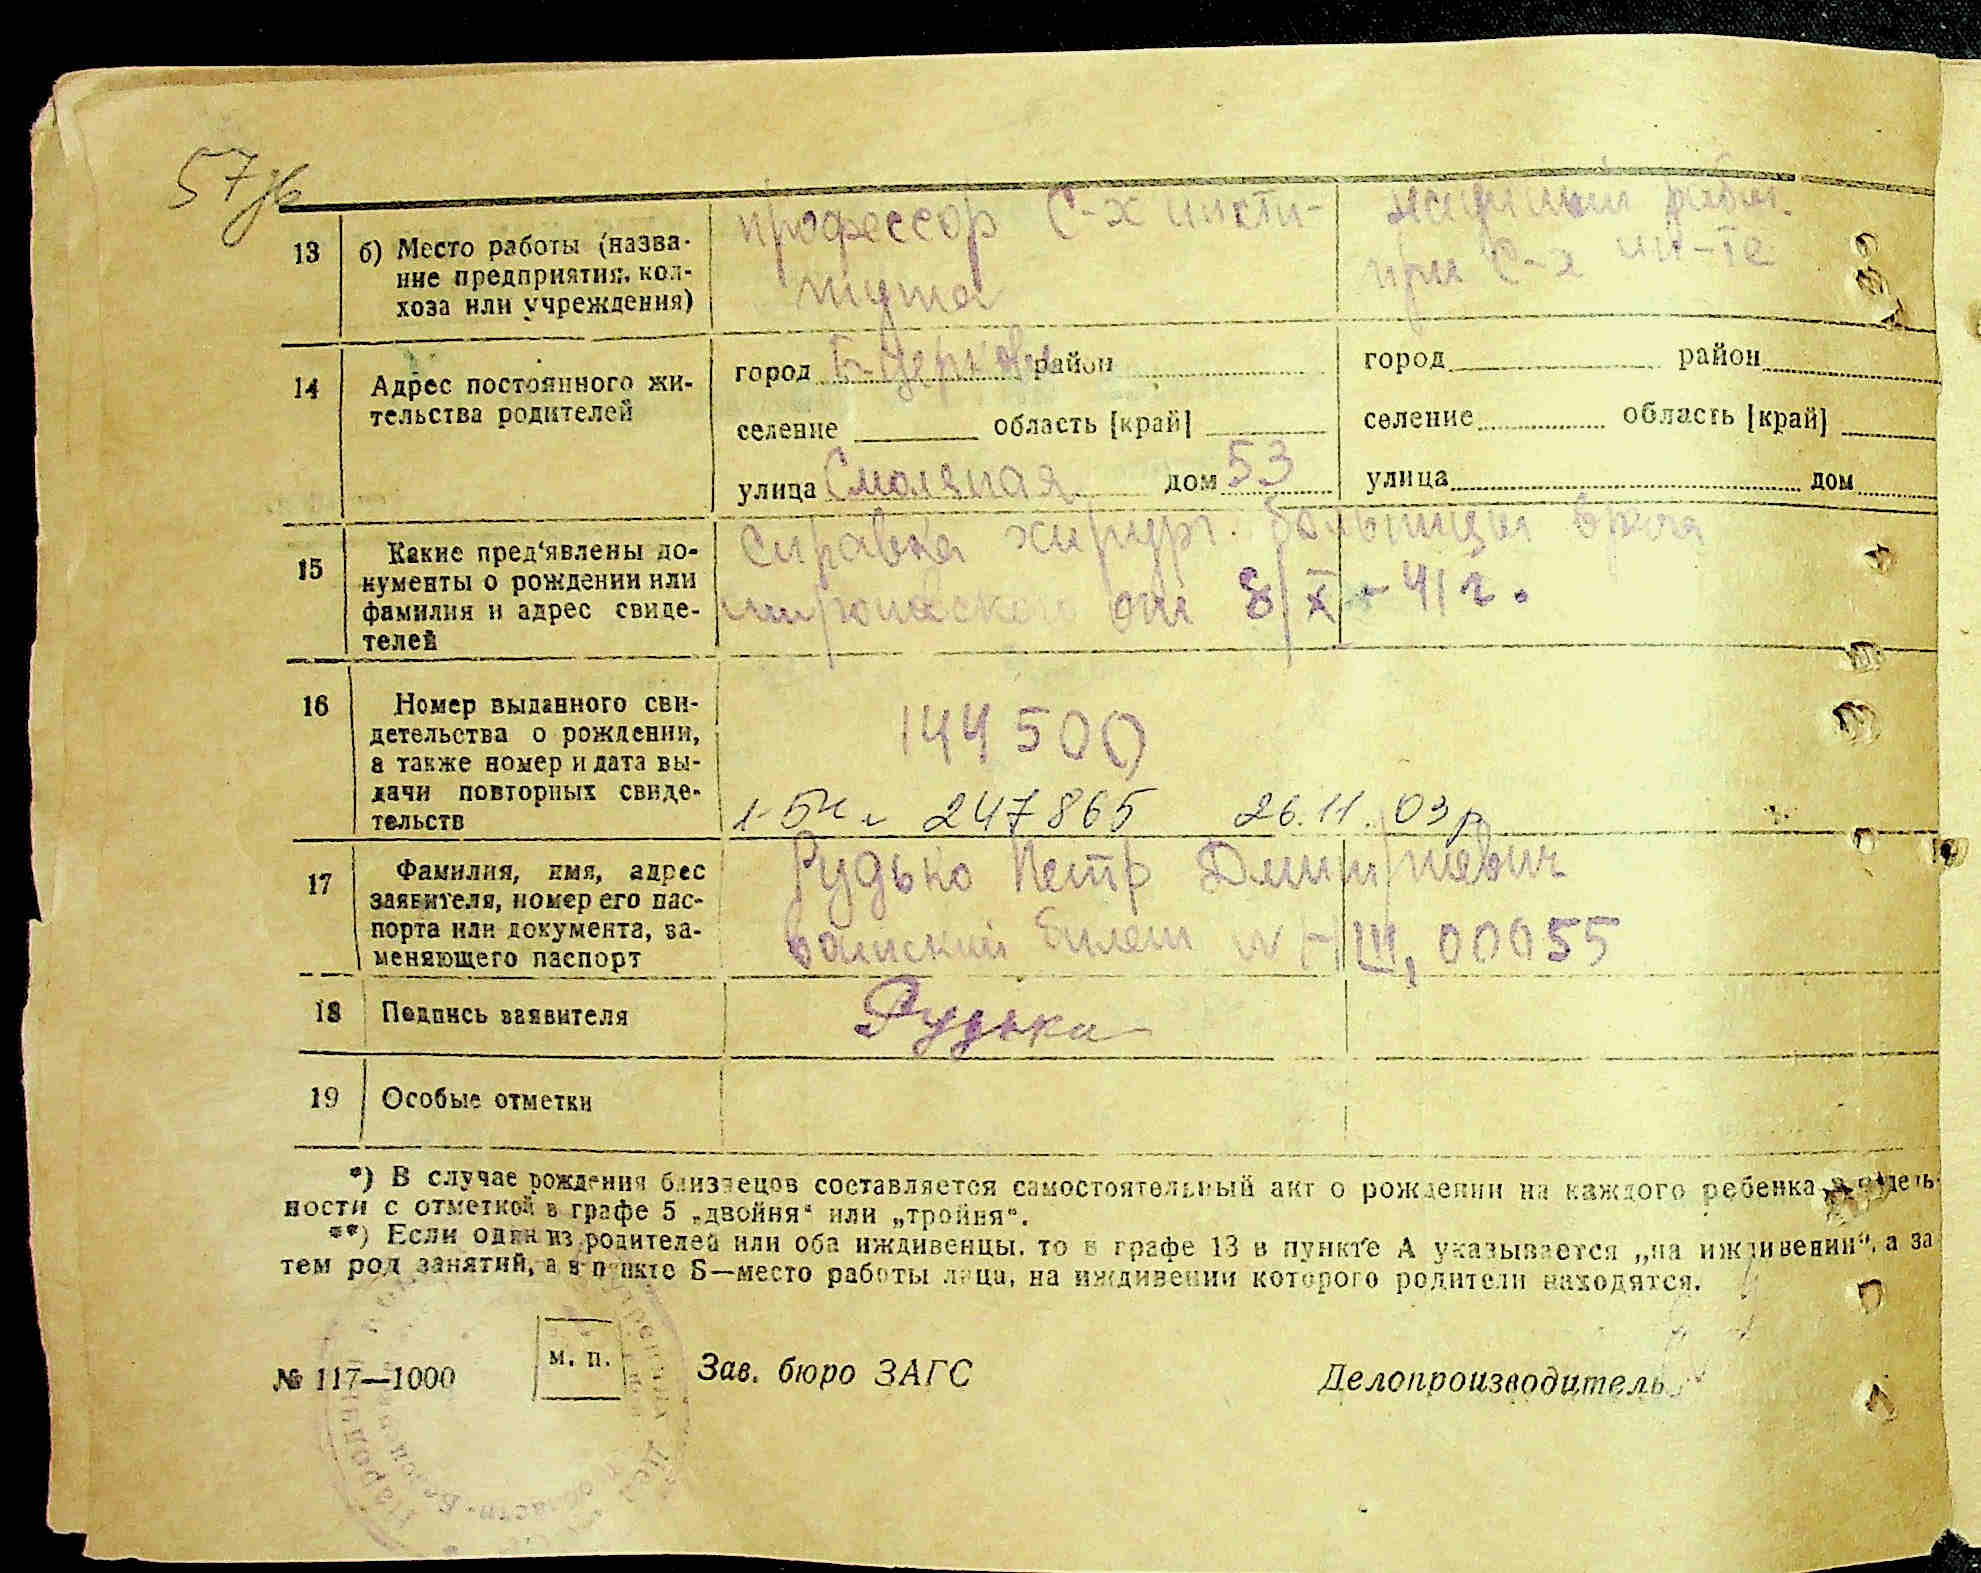 57
13 б) Место работы (назва-
ние предприятия, кол-
хоза или учреждения)
профессор С-х инсти-
тута
научный работ.
при С-х ин-те
14 Адрес постоянного жи-
тельства родителей
город Б-Церковь район
селение область [край]
улица Смоляная дом 53
город район
селение область [край]
улица дом
15 Какие пред'явлены до-
кументы о рождении или
фамилия и адрес свиде-
телей
Справка хирург. больницы врача
от 8/X-41 г.
16 Номер выданного сви-
детельства о рождении,
а также номер и дата вы-
дачи повторных свиде-
тельств
144500
247865 26.11.03р
17 Фамилия, имя, адрес
заявителя, номер его пас-
порта или документа, за-
меняющего паспорт
Рудько Петр Дмитриевич
воинский билет 00055
18 Подпись заявителя
Рудько
19 Особые отметки
*) В случае рождения близнецов составляется самостоятельный акт о рождении на каждого ребенка в отдель-
ности с отметкой в графе 5 „двойня“ или „тройня“.
**) Если один из родителей или оба иждивенцы, то в графе 13 в пункте А указывается „на иждивении“, а за
тем род занятий, а в пункте Б—место работы лица, на иждивении которого родители находятся.
№ 117—1000
м. п.
Зав. бюро ЗАГС
Делопроизводитель